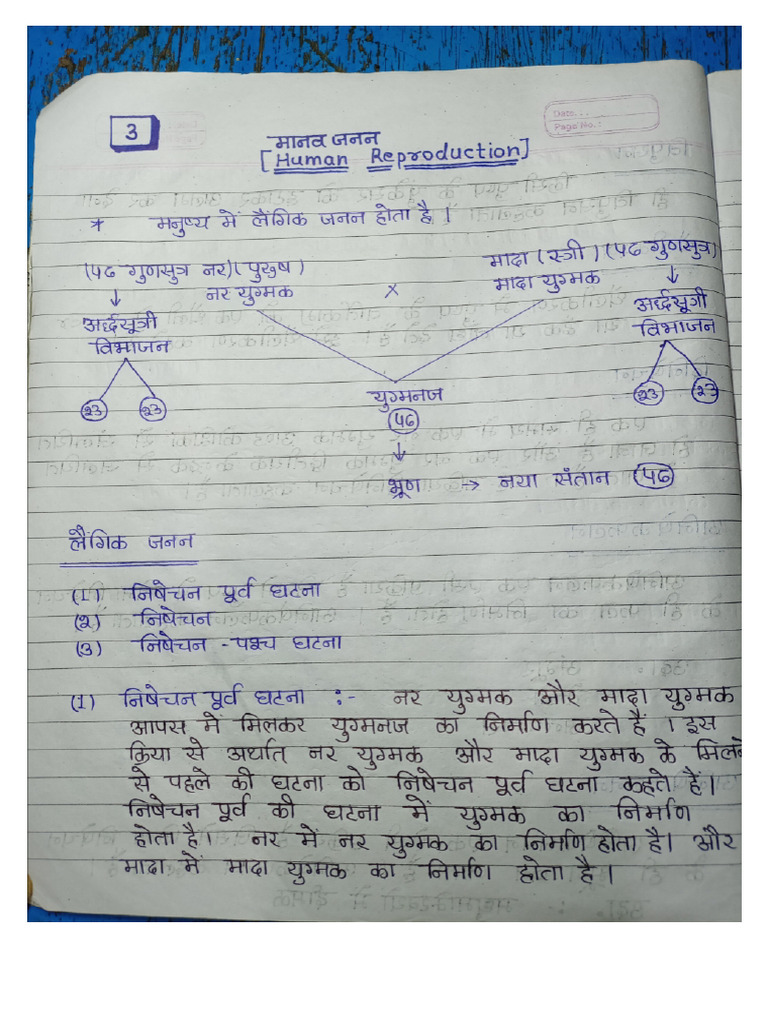 3
Date...
Page No.:
मानव जनन
[Human Reproduction]
* मनुष्य में लैंगिक जनन होता है।
(४६ गुणसूत्र नर) (पुरुष) मादा (स्त्री) (४६ गुणसूत्र)
नर युग्मक × मादा युग्मक
अर्द्धसूत्री विभाजन
अर्द्धसूत्री विभाजन
२३ २३ २३ २३
युग्मनज
४६
भ्रूण → नया संतान ४६
लैंगिक जनन
(1) निषेचन पूर्व घटना
(२) निषेचन
(3) निषेचन - पश्च घटना
(1) निषेचन पूर्व घटना :- नर युग्मक और मादा युग्मक
आपस में मिलकर युग्मनाज का निर्माण करते हैं । इस
क्रिया से अर्थात् नर युग्मक और मादा युग्मक के मिलने
से पहले की घटना को निषेचन पूर्व घटना कहते हैं।
निषेचन पूर्व की घटना में युग्मक का निर्माण
होता है। नर में नर युग्मक का निर्माण होता है। और
मादा में मादा युग्मक का निर्माण होता है ।